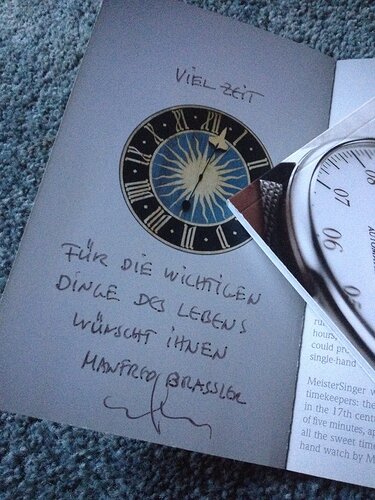 VIEL ZEIT
XII
I
FÜR DIE WICHTIGEN
DINGE DES LEBENS
WÜNSCHT IHNEN
MANFRED BRASSLER
08
07
06
hours,
could
single-hand
MeisterSinger
timekeepers: the
in the 17th
of five minutes,
all the sweet time
hand watch by